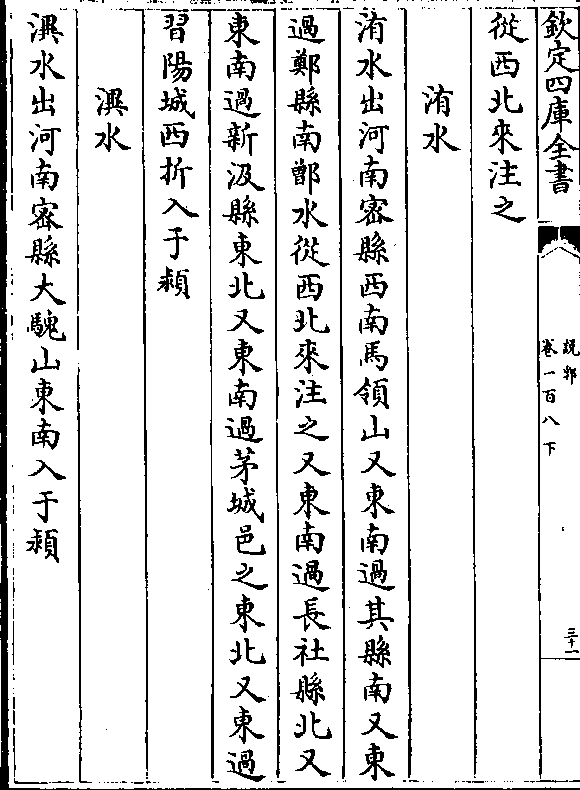 欽定四庫全書
說郛
卷一百八下
三十一
從西北來注之
洧水
洧水出河南密縣西南馬領山又東南過其縣南又東
過鄭縣南鄫水從西北來注之又東南過長社縣北又
東南過新汲縣東北又東南過茅城邑之東北又東過
習陽城西折入于潁
潩水
潩水出河南密縣大騩山東南入于潁